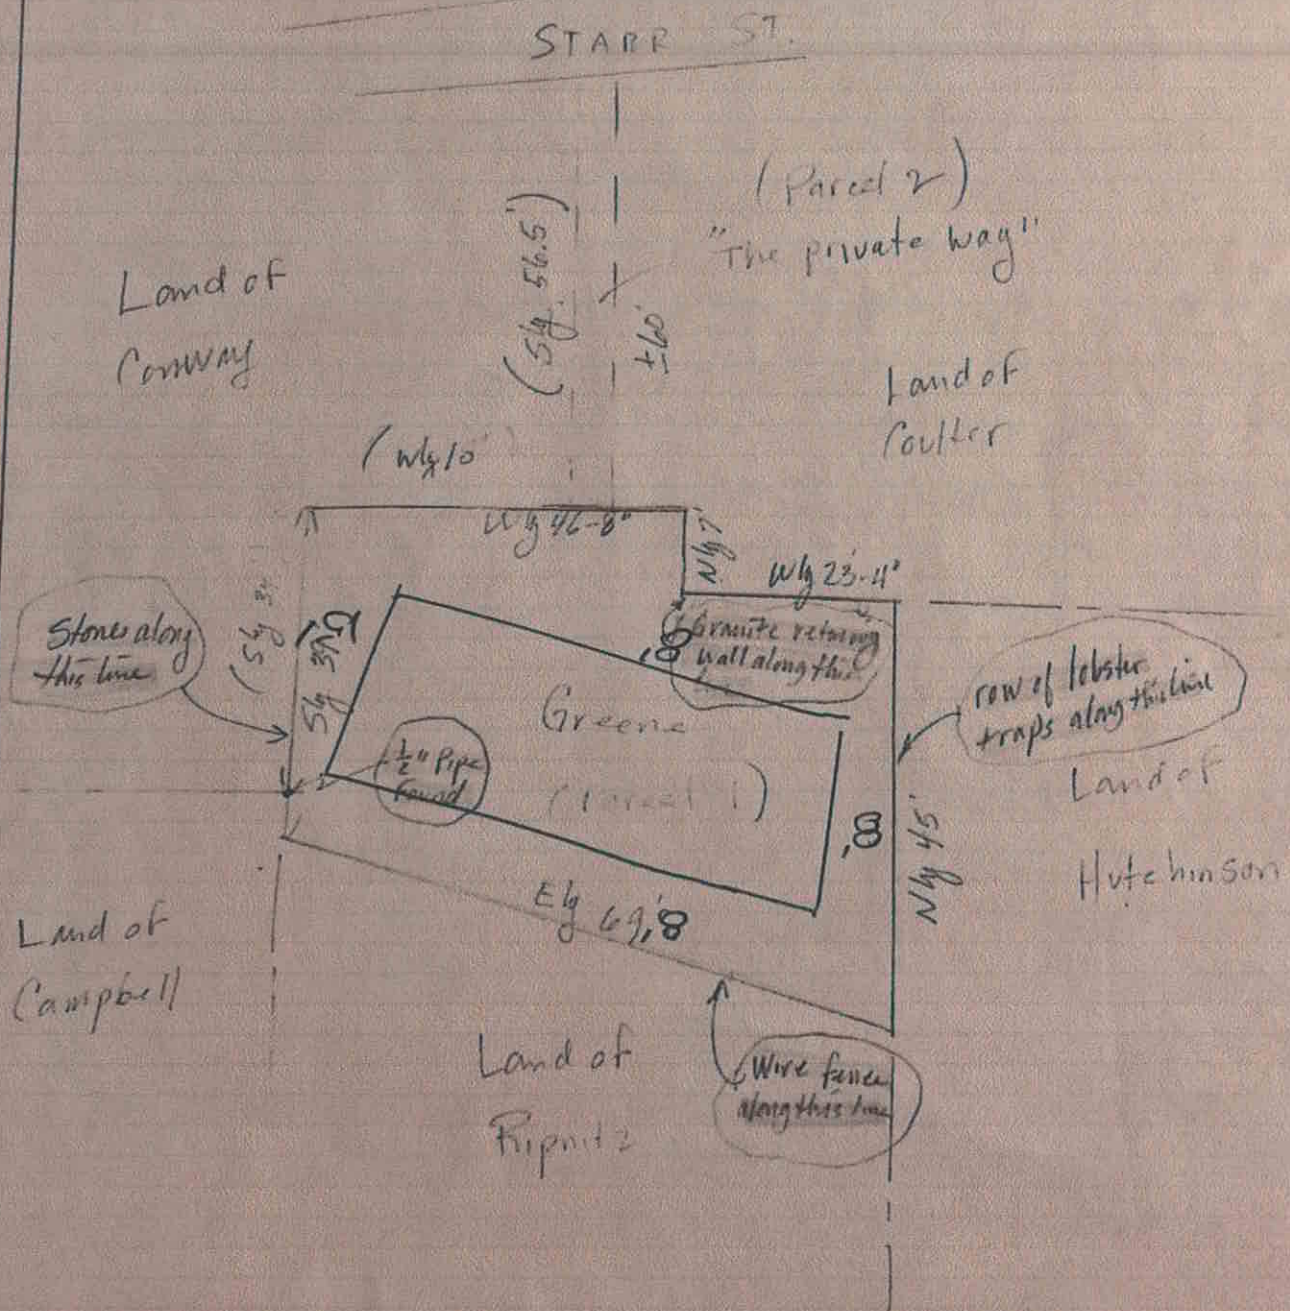 STARR ST.
(Parcel 2)
"The private way"
(Sly. 56.5')
±60'
Land of
Conway
Land of
Coulter
(Wly 10'
Wly 46-8"
Nly 7
Wly 23'-4"
Stones along
this line
(Sly 34'
Sly
Granite retaining
wall along this
row of lobster
traps along this line
Greene
(Parcel 1)
1/2" Pipe
found
Land of
Hutchinson
Nly 45'
Ely 69'
Land of
Campbell
Land of
Wire fence
along this line